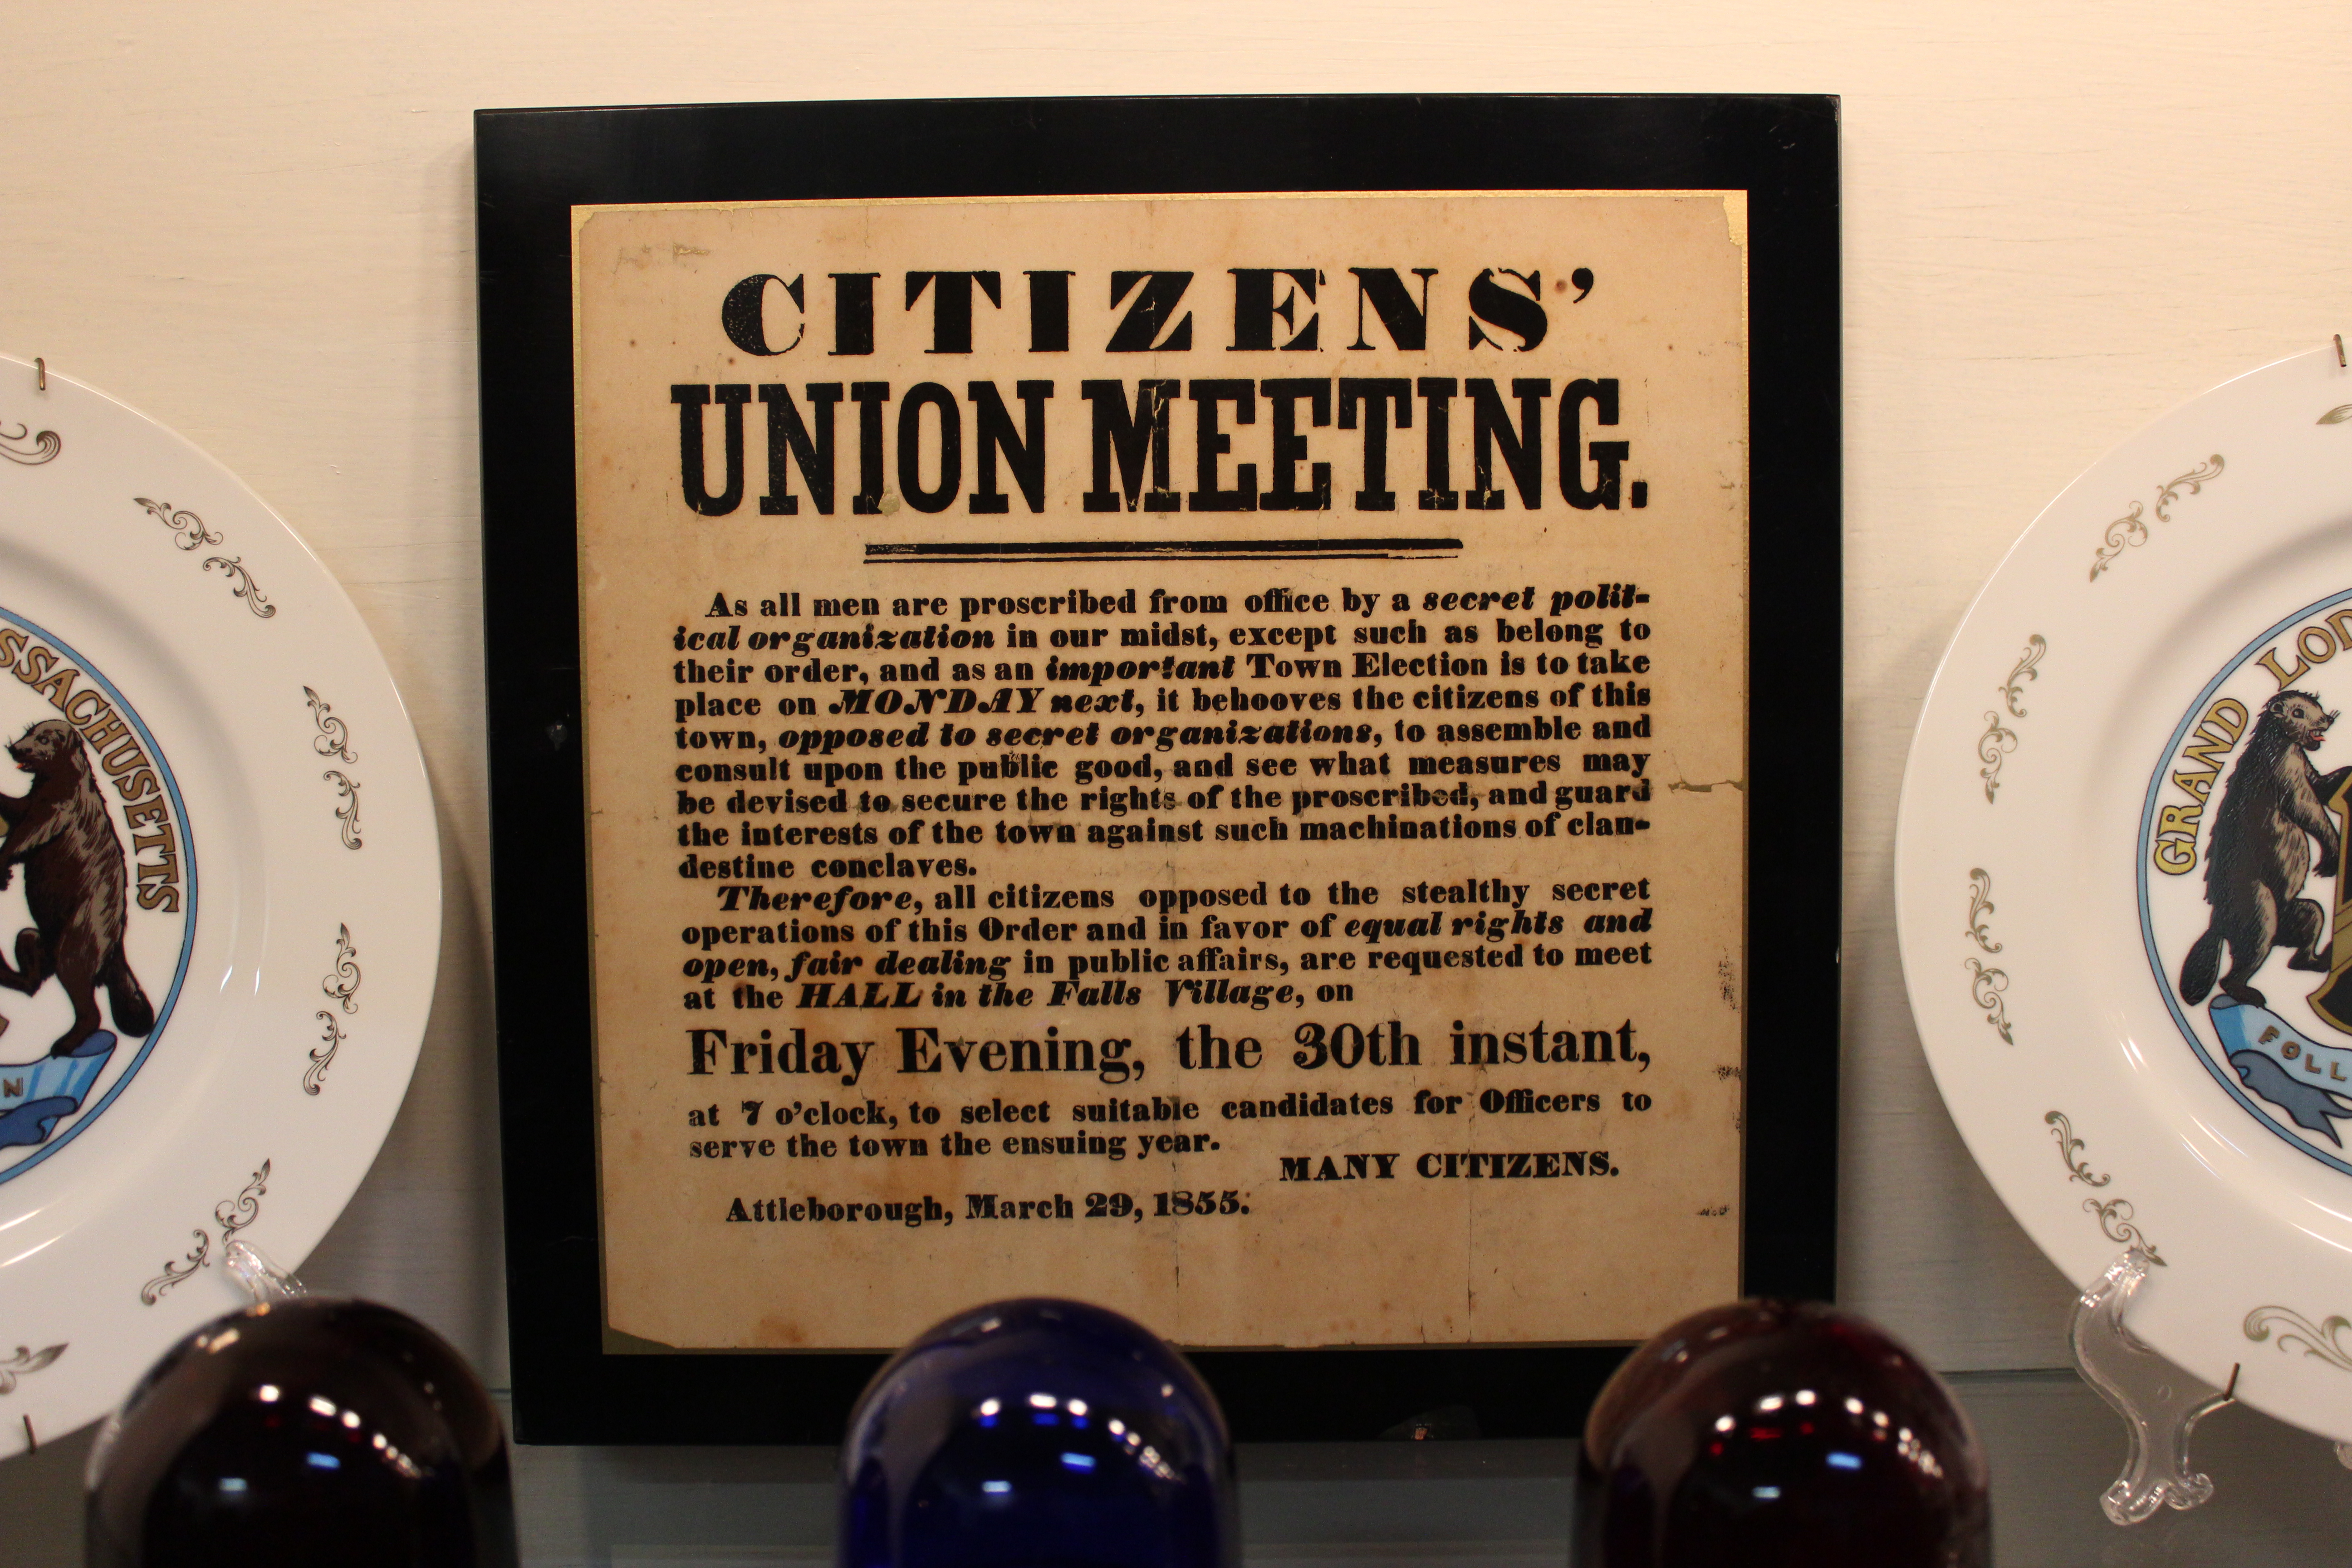 CITIZENS'
UNION MEETING.
As all men are proscribed from office by a secret polit-
ical organization in our midst, except such as belong to
their order, and as an important Town Election is to take
place on MONDAY next, it behooves the citizens of this
town, opposed to secret organizations, to assemble and
consult upon the public good, and see what measures may
be devised to secure the rights of the proscribed, and guard
the interests of the town against such machinations of clan-
destine conclaves.
Therefore, all citizens opposed to the stealthy secret
operations of this Order and in favor of equal rights and
open, fair dealing in public affairs, are requested to meet
at the HALL in the Falls Village, on
Friday Evening, the 30th instant,
at 7 o'clock, to select suitable candidates for Officers to
serve the town the ensuing year.
MANY CITIZENS.
Attleborough, March 29, 1855.
SSACHUSETTS
N
GRAND LOD
FOLL